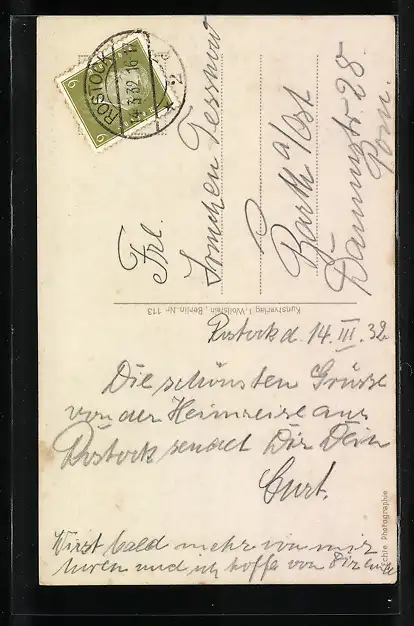 ROSTOCK
14.3.32.16-17
* 2
6
6
Frl.
Irmchen Tessnow
Barth a/Ost
Dammstr. 28
Pom.
Kunstverlag I. Wollstein, Berlin. Nr. 113
Rostock d. 14. III. 32
Die schönsten Grüsse
von der Heimreise aus
Rostock sendet Dir Dein
Curt.
Wirst bald mehr von mir
hören und ich hoffe von Dir auch
Photographie